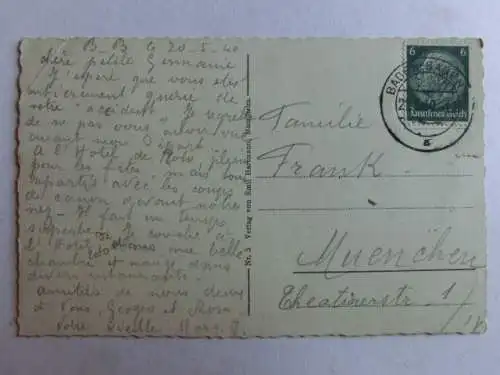 B-B le 20-5-40
chère petite Germaine
J'espère que vous êtes
entièrement guérie de
votre "accident". Je regrette
de ne pas vous avoir vue
avant mon départ
A l'Hotel de
pour les fêtes, mais sont
repartis avec les coups
de canon devant notre
nez - Il fait un temps
superbe. Je
l'Hotel une belle
chambre et mange dans
divers restaurants
amitiés de nous deux
à Vous, Georges et Rosa
Votre vieille Marg.
Nr. 3 Verlag von Emil Hartmann, Mannheim.
6 6
Deutsches Reich
BADEN-BADEN
Familie
Frank
Muenchen
Theatinerstr 1/